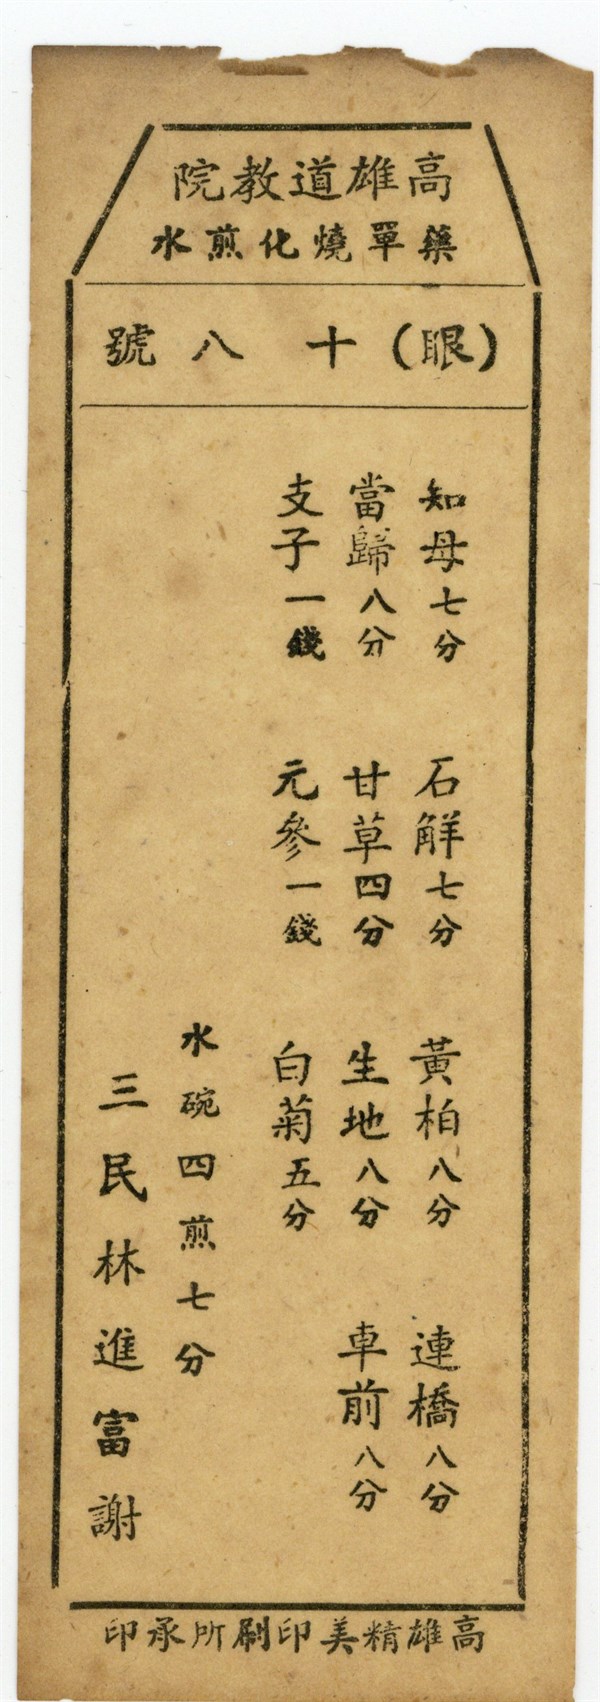 高雄道教院
藥單燒化煎水
(眼)十八號
知母七分 石觧七分 黃柏八分 連橋八分
當歸八分 甘草四分 生地八分 車前八分
支子一錢 元參一錢 白菊五分
水碗四煎七分
三民林進富謝
高雄精美印刷所承印